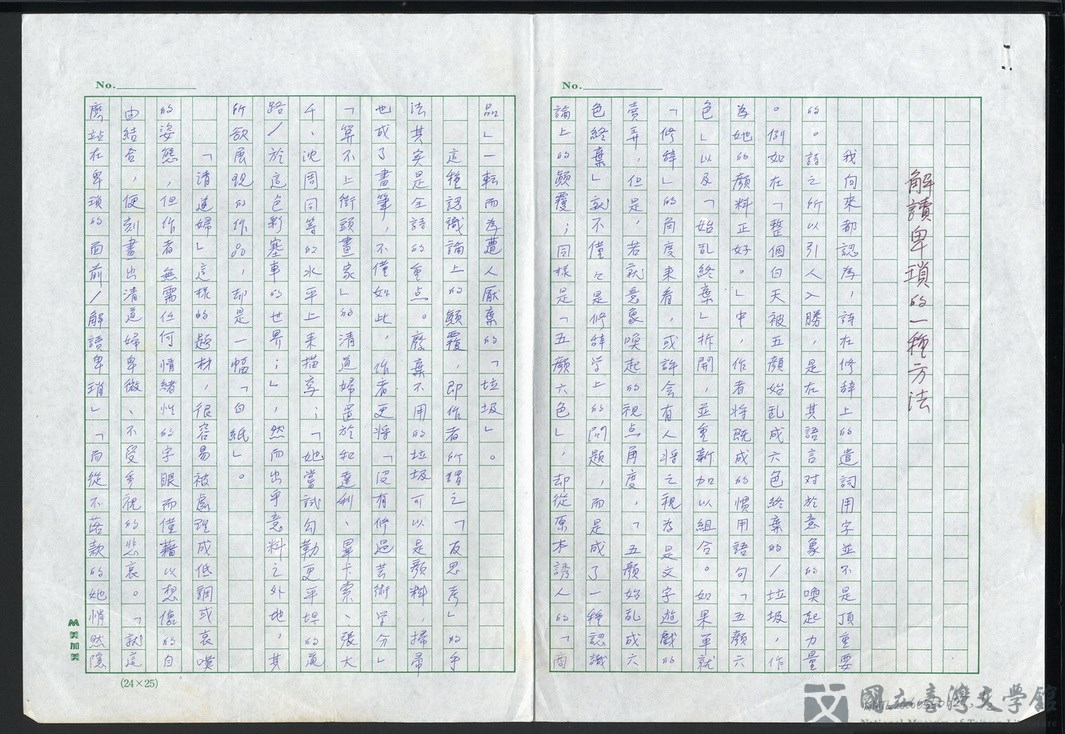 No.
解讀卑瑣的一種方法
我向來都認為，詩在修辭上的遣詞用字並不是頂重要
的。詩之所以引人入勝，是在其語言对於意象的喚起力量
。例如在「整個白天被五顏始乱成六色終棄的／垃圾，作
為她的顏料正好。」中，作者將既成的慣用語句「五顏六
色」以及「始乱終棄」拆開，並重新加以組合。如果單就
「修辞」的角度來看，或許会有人將之視為是文字遊戲的
賣弄，但是，若就意象喚起的視点角度，「五顏始乱成六
色終棄」就不僅々是修辞学上的問題，而是成了一種認識
論上的顛覆；同樣是「五顏六色」，却從原本誘人的「商
No.
品」一転而為遭人厭棄的「垃圾」。
這種認識論上的顛覆，即作者所謂之「反思考」的手
法其实是全詩的重点。廢棄不用的垃圾可以是顏料，掃帚
也成了畫筆，不僅如此，作者更將「没有修過芸術学分」
「算不上街頭畫家」的清道婦置於和達利、畢卡索、張大
千、沈周同等的水平上來描寫；「她嘗試勾勒更平坦的道
路／於這色彩塞車的世界；」，然而出乎意料之外地，其
所欲展現的作品，却是一幅「白紙」。
「清道婦」這樣的題材，很容易被處理成低調或哀嘆
的姿態，但作者無需任何情緒性的字眼而僅藉以想像的自
由結合，便刻畫出清道婦卑微、不受重視的悲哀。「就這
麼站在卑瑣的面前／解讀卑瑣」「而從不落款的她悄然隐
(24×25)
美加美
國立臺灣文學館
National Museum of Taiwan Literature